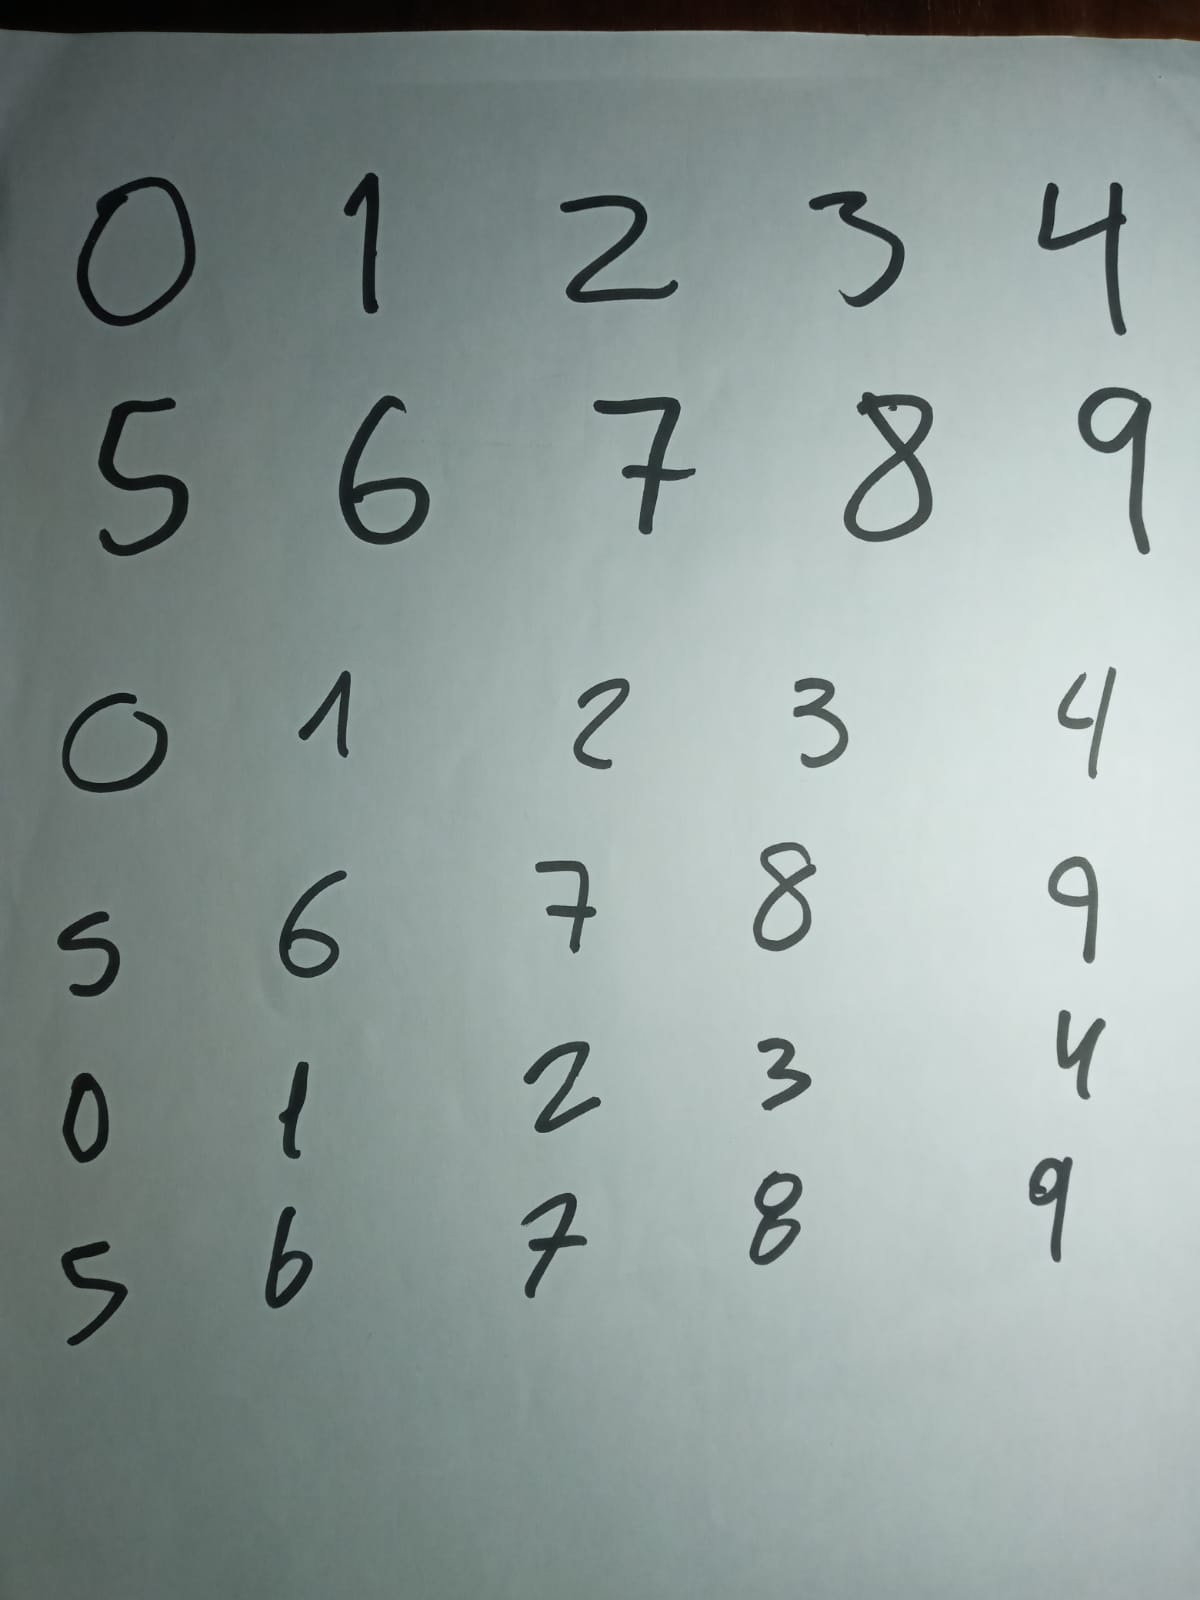 0 1 2 3 4
5 6 7 8 9
0 1 2 3 4
5 6 7 8 9
0 1 2 3 4
5 6 7 8 9